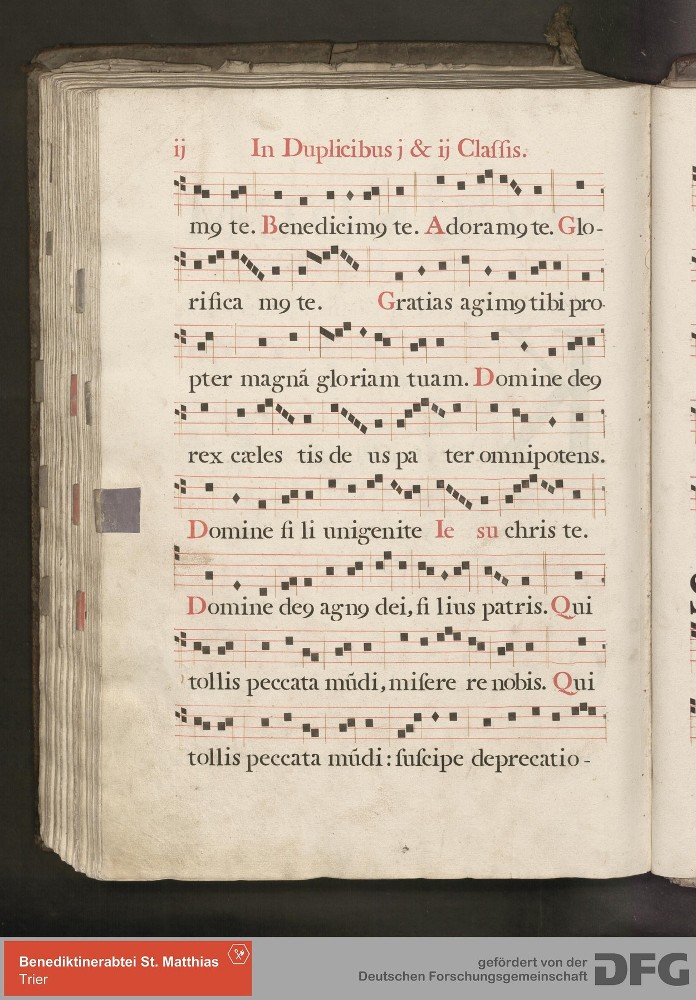 ij In Duplicibus j & ij Claſſis.
mꝯ te. Benedicimꝯ te. Adoramꝯ te. Glo-
rifica mꝯ te. Gratias agimꝯ tibi pro-
pter magnã gloriam tuam. Domine deꝯ
rex cæles tis de us pa ter omnipotens.
Domine fi li unigenite Ie su chris te.
Domine deꝯ agnꝯ dei, fi lius patris. Qui
tollis peccata mũdi, miſere re nobis. Qui
tollis peccata mũdi: ſuſcipe deprecatio-
Benediktinerabtei St. Matthias
Trier
gefördert von der
Deutschen Forschungsgemeinschaft
DFG